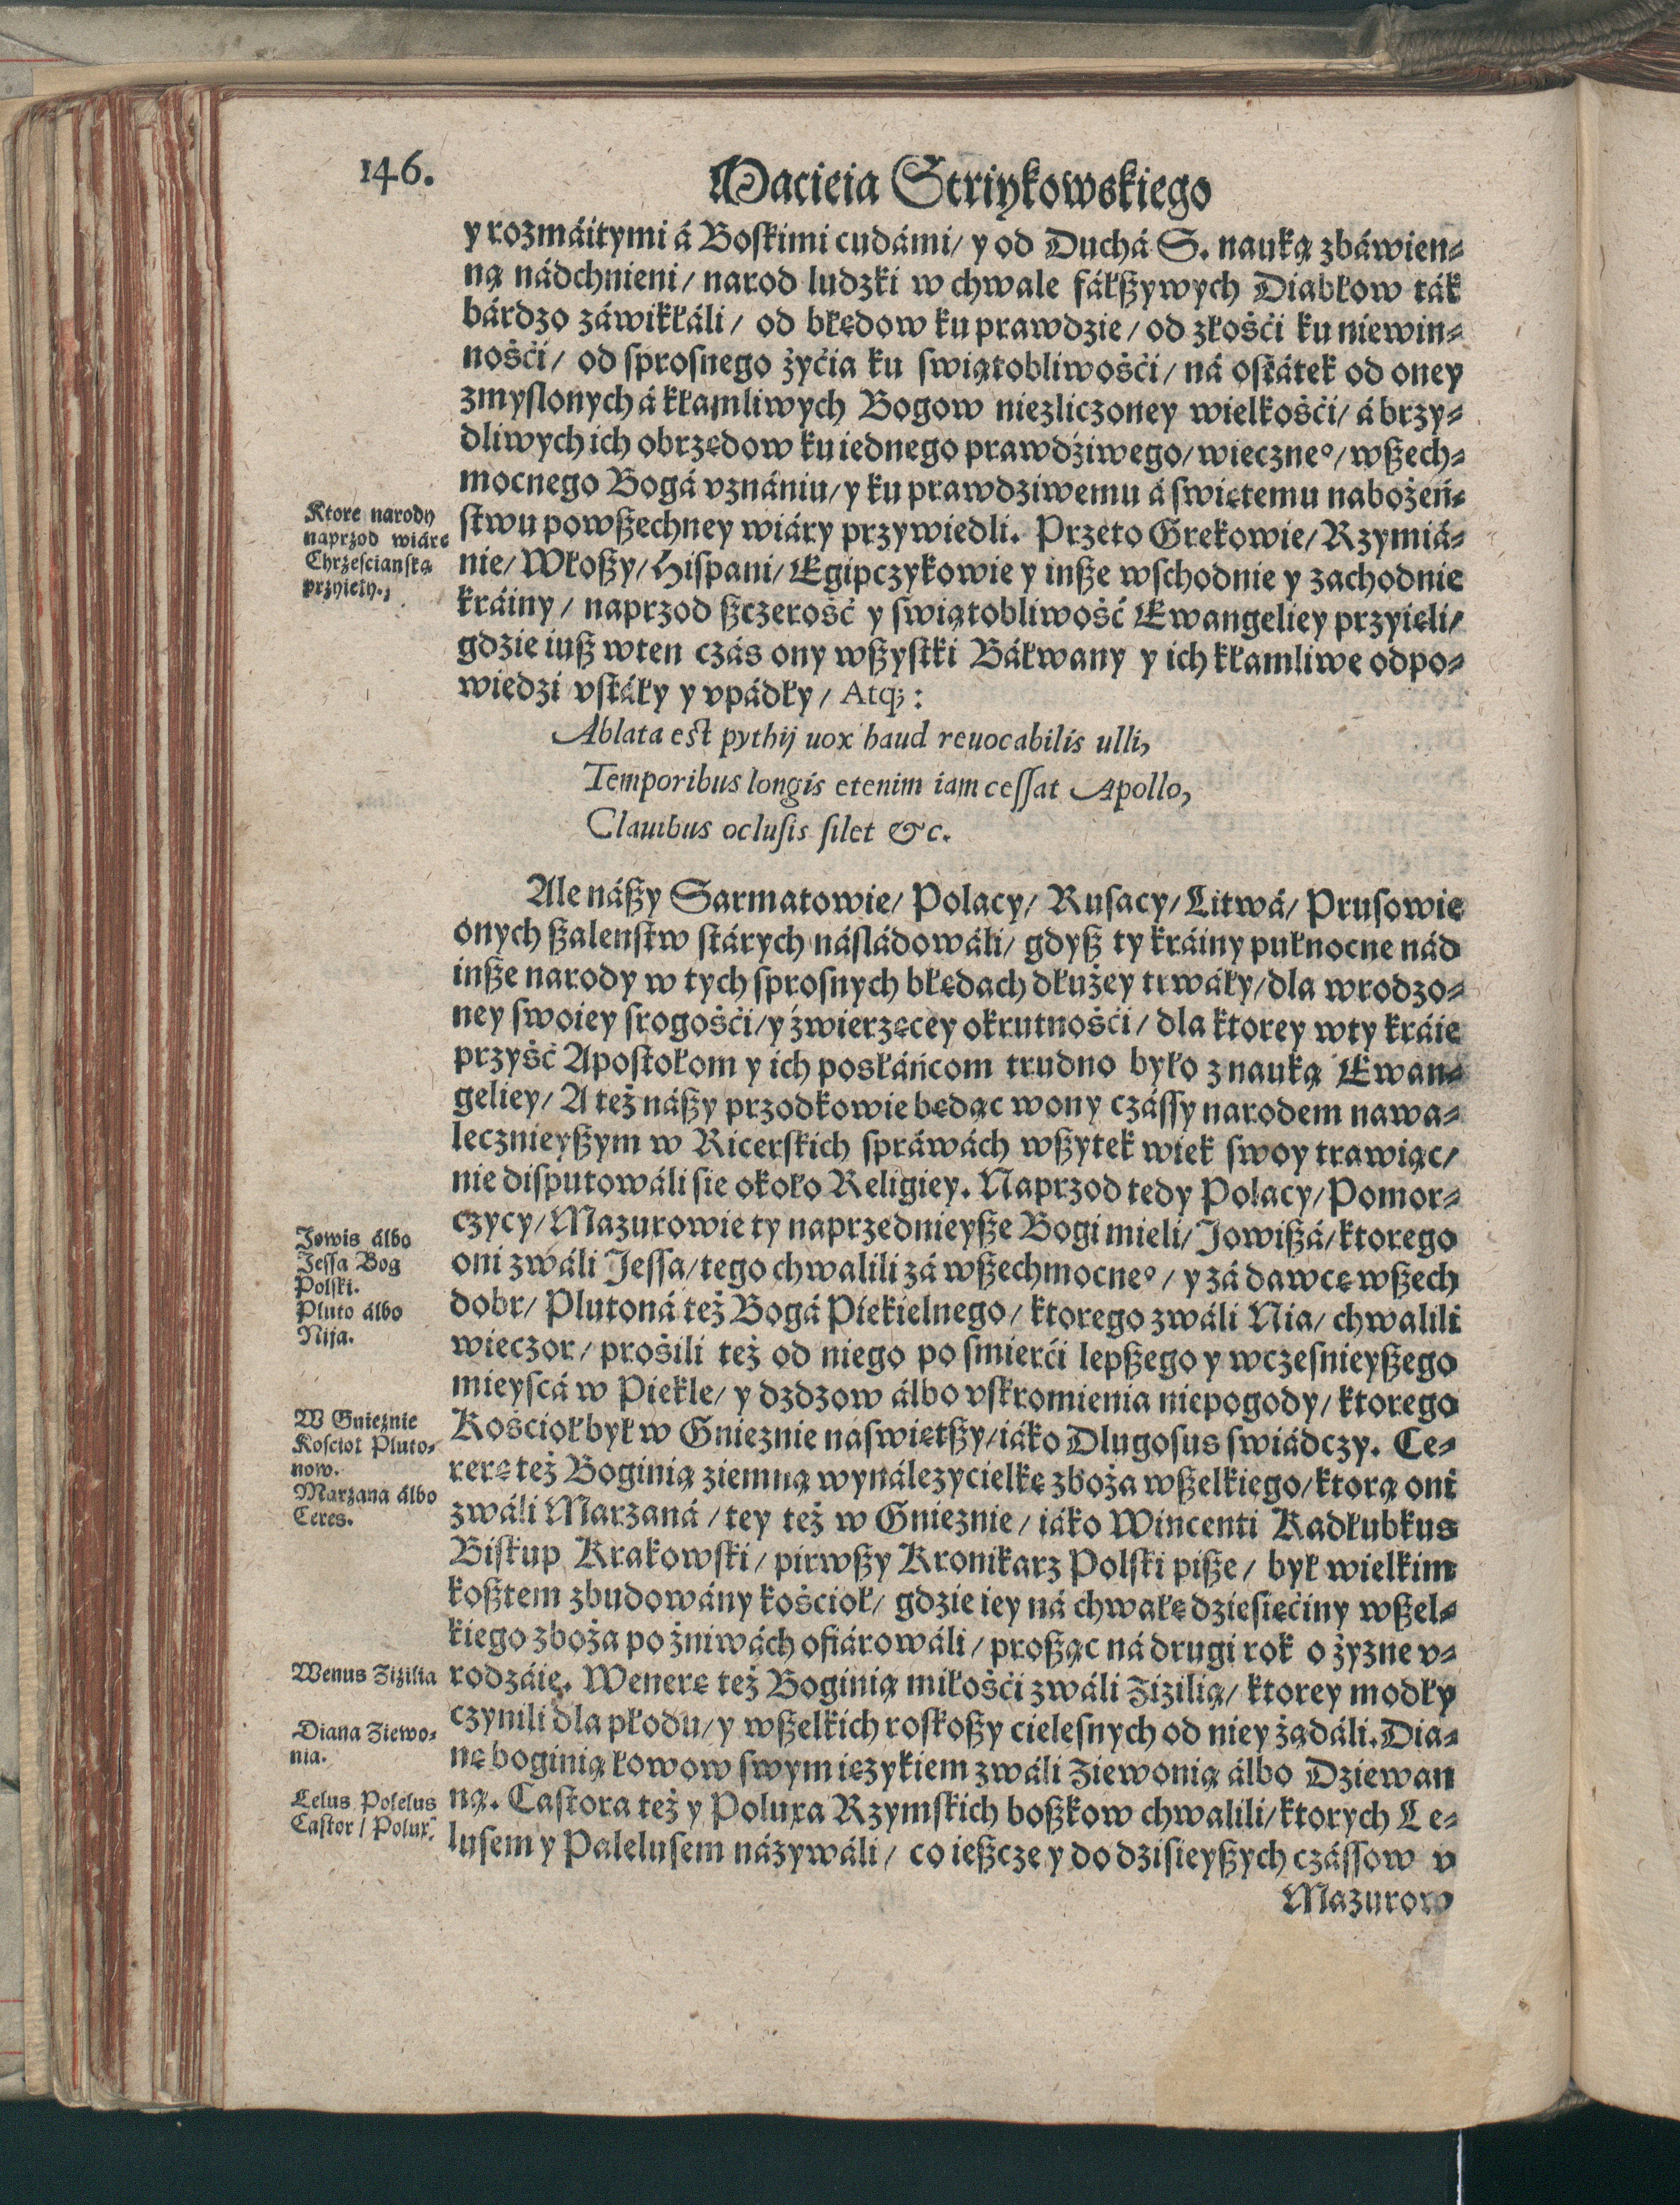 146.
Macieia Striykowskiego
y rozmáitymi á Boskimi cudámi/ y od Duchá S. nauką zbáwien⸗
ną nádchnieni/ narod ludzki w chwale fáłßywych Diabłow ták
bárdzo záwikłáli/ od błędow ku prawdzie/ od złośći ku niewin⸗
nośći/ od sprosnego żyćia ku swiątobliwośći/ ná ostátek od oney
zmyslonych á kłamliwych Bogow niezliczoney wielkośći/ á brzy⸗
dliwych ich obrzędow ku iednego prawdźiwego/ wieczneº/ wßech⸗
mocnego Bogá vznániu/ y ku prawdziwemu á swiętemu nabożeń⸗
Ktore narody
naprzod wiárę
Chrzesciańską
przyięły.
stwu powßechney wiáry przywiedli. Przeto Grekowie/ Rzymiá⸗
nie/ Włoßy/ Hispani/ Egipczykowie y inße wschodnie y zachodnie
kráiny/ naprzod ßczerość y swiątobliwość Ewangeliey przyięli/
gdzie iuß wten czás ony wßystki Báłwany y ich kłamliwe odpo⸗
wiedzi vstáły y vpádły/ Atq;:
Ablata est pythij uox haud reuocabilis ulli,
Temporibus longis etenim iam cessat Apollo,
Clauibus oclusis silet &c.
Ale náßy Sarmatowie/ Polacy/ Rusacy/ Litwá/ Prusowie
onych ßalenstw stárych násládowáli/ gdyß ty kráiny pułnocne nád
inße narody w tych sprosnych błędach dłużey trwáły/ dla wrodzo⸗
ney swoiey srogośći/ y źwierzęcey okrutnośći/ dla ktorey wty kráie
przyść Apostołom y ich posłáńcom trudno było z nauką Ewan⸗
geliey/ A też náßy przodkowie będąc wony czássy narodem nawa⸗
lecznieyßym w Ricerskich spráwách wßytek wiek swoy trawiąc/
nie disputowáli sie około Religiey. Naprzod tedy Polacy/ Pomor⸗
czycy/ Mazurowie ty naprzednieyße Bogi mieli/ Jowißá/ ktorego
Jowis álbo
Jessa Bog
Polski.
Pluto álbo
Nija.
oni zwáli Jessa/ tego chwalili zá wßechmocneº/ y zá dawcę wßech
dobr/ Plutoná też Bogá Piekielnego/ ktorego zwáli Nia/ chwalili
wieczor/ prośili też od niego po smierći lepßego y wczesnieyßego
mieyscá w Piekle/ y dzdzow álbo vskromienia niepogody/ ktorego
W Gnieźnie
Kosciol Pluto⸗
now.
Marzana álbo
Ceres.
Kośćioł był w Gnieznie naswiętßy/ iáko Dlugosus swiádczy. Ce⸗
rerę też Boginią ziemną wynálezycielkę zboża wßelkiego/ ktorą oni
zwáli Marzaná/ tey też w Gnieznie/ iáko Wincenti Kadłubkus
Biskup Krakowski/ pirwßy Kronikarz Polski piße/ był wielkim
koßtem zbudowány kośćioł/ gdzie iey ná chwałę dziesięćiny wßel⸗
kiego zboża po żniwách ofiárowáli/ proßąc ná drugi rok o żyzne v⸗
Wenus Ziżilia
rodzáię. Wenerę też Boginią miłośći zwáli Zizilią/ ktorey modły
czynili dla płodu/ y wßelkich roskoßy cielesnych od niey żądáli. Dia⸗
Diana Ziewo⸗
nia.
nę boginią łowow swym ięzykiem zwáli Ziewonią álbo Dziewan
Lelus Polelus
Castor/ Polux.
ną. Castora też y Poluxa Rzymskich boßkow chwalili/ ktorych Le⸗
lusem y Palelusem názywáli/ co ießcze y do dzisieyßych czássow v
Mazurow